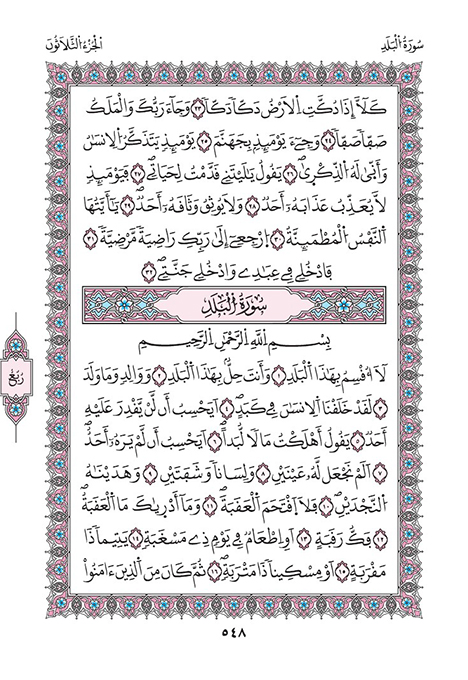 سُورَةُ الْبَلَدِ
الْجُزْءُ الثَّلَاثُونَ
كَلَّآ إِذَا دُكَّتِ الْأَرْضُ دَكّاً دَكّاً ٢٣ وَجَآءَ رَبُّكَ وَالْمَلَكُ
صَفّاً صَفّاً ٢٤ وَجِےٓءَ يَوْمَئِذٍ بِجَهَنَّمَ ٢٥ يَوْمَئِذٍ يَتَذَكَّرُ الْاِنسَٰنُ
وَأَنّ۪ىٰ لَهُ الذِّكْر۪ىٰ ٢٦ يَقُولُ يَٰلَيْتَنِے قَدَّمْتُ لِحَيَاتِے ٢٧ فَيَوْمَئِذٍ
لَّا يُعَذِّبُ عَذَابَهُۥٓ أَحَدٌ ٢٨ وَلَا يُوثِقُ وَثَاقَهُۥٓ أَحَدٌ ٢٩ يَٰٓأَيَّتُهَا
النَّفْسُ الْمُطْمَئِنَّةُ ٣٠ اُ۪رْجِعِےٓ إِلَىٰ رَبِّكِ رَاضِيَةً مَّرْضِيَّةً ٣١
فَادْخُلِے فِے عِبَٰدِے وَادْخُلِے جَنَّتِے ٣٢
سُورَةُ الْبَلَدِ
بِسْمِ اللَّهِ الرَّحْمَٰنِ الرَّحِيمِ
لَآ أُقْسِمُ بِهَٰذَا الْبَلَدِ ١ وَأَنتَ حِلُّۢ بِهَٰذَا الْبَلَدِ ٢ وَوَالِدٍ وَمَا وَلَدَ
٣ لَقَدْ خَلَقْنَا الْاِنسَٰنَ فِے كَبَدٍ ٤ اَيَحْسِبُ أَن لَّنْ يَّقْدِرَ عَلَيْهِ
أَحَدٌ ٥ يَقُولُ أَهْلَكْتُ مَالاً لُّبَداً ٦ اَيَحْسِبُ أَن لَّمْ يَرَهُۥٓ أَحَدٌ
٧ اَلَمْ نَجْعَل لَّهُۥ عَيْنَيْنِ ٨ وَلِسَاناً وَشَفَتَيْنِ ٩ وَهَدَيْنَٰهُ
النَّجْدَيْنِ ١٠ فَلَا اَ۪قْتَحَمَ الْعَقَبَةَ ١١ وَمَآ أَدْر۪ىٰكَ مَا الْعَقَبَةُ
١٢ فَكُّ رَقَبَةٍ ١٣ اَوِ اِطْعَٰمٌ فِے يَوْمٍ ذِے مَسْغَبَةٍ ١٤ يَتِيماً ذَا
مَقْرَبَةٍ ١٥ اَوْ مِسْكِيناً ذَا مَتْرَبَةٍ ١٦ ثُمَّ كَانَ مِنَ الَّذِينَ ءَامَنُواْ
رُبُع
٥٤٨